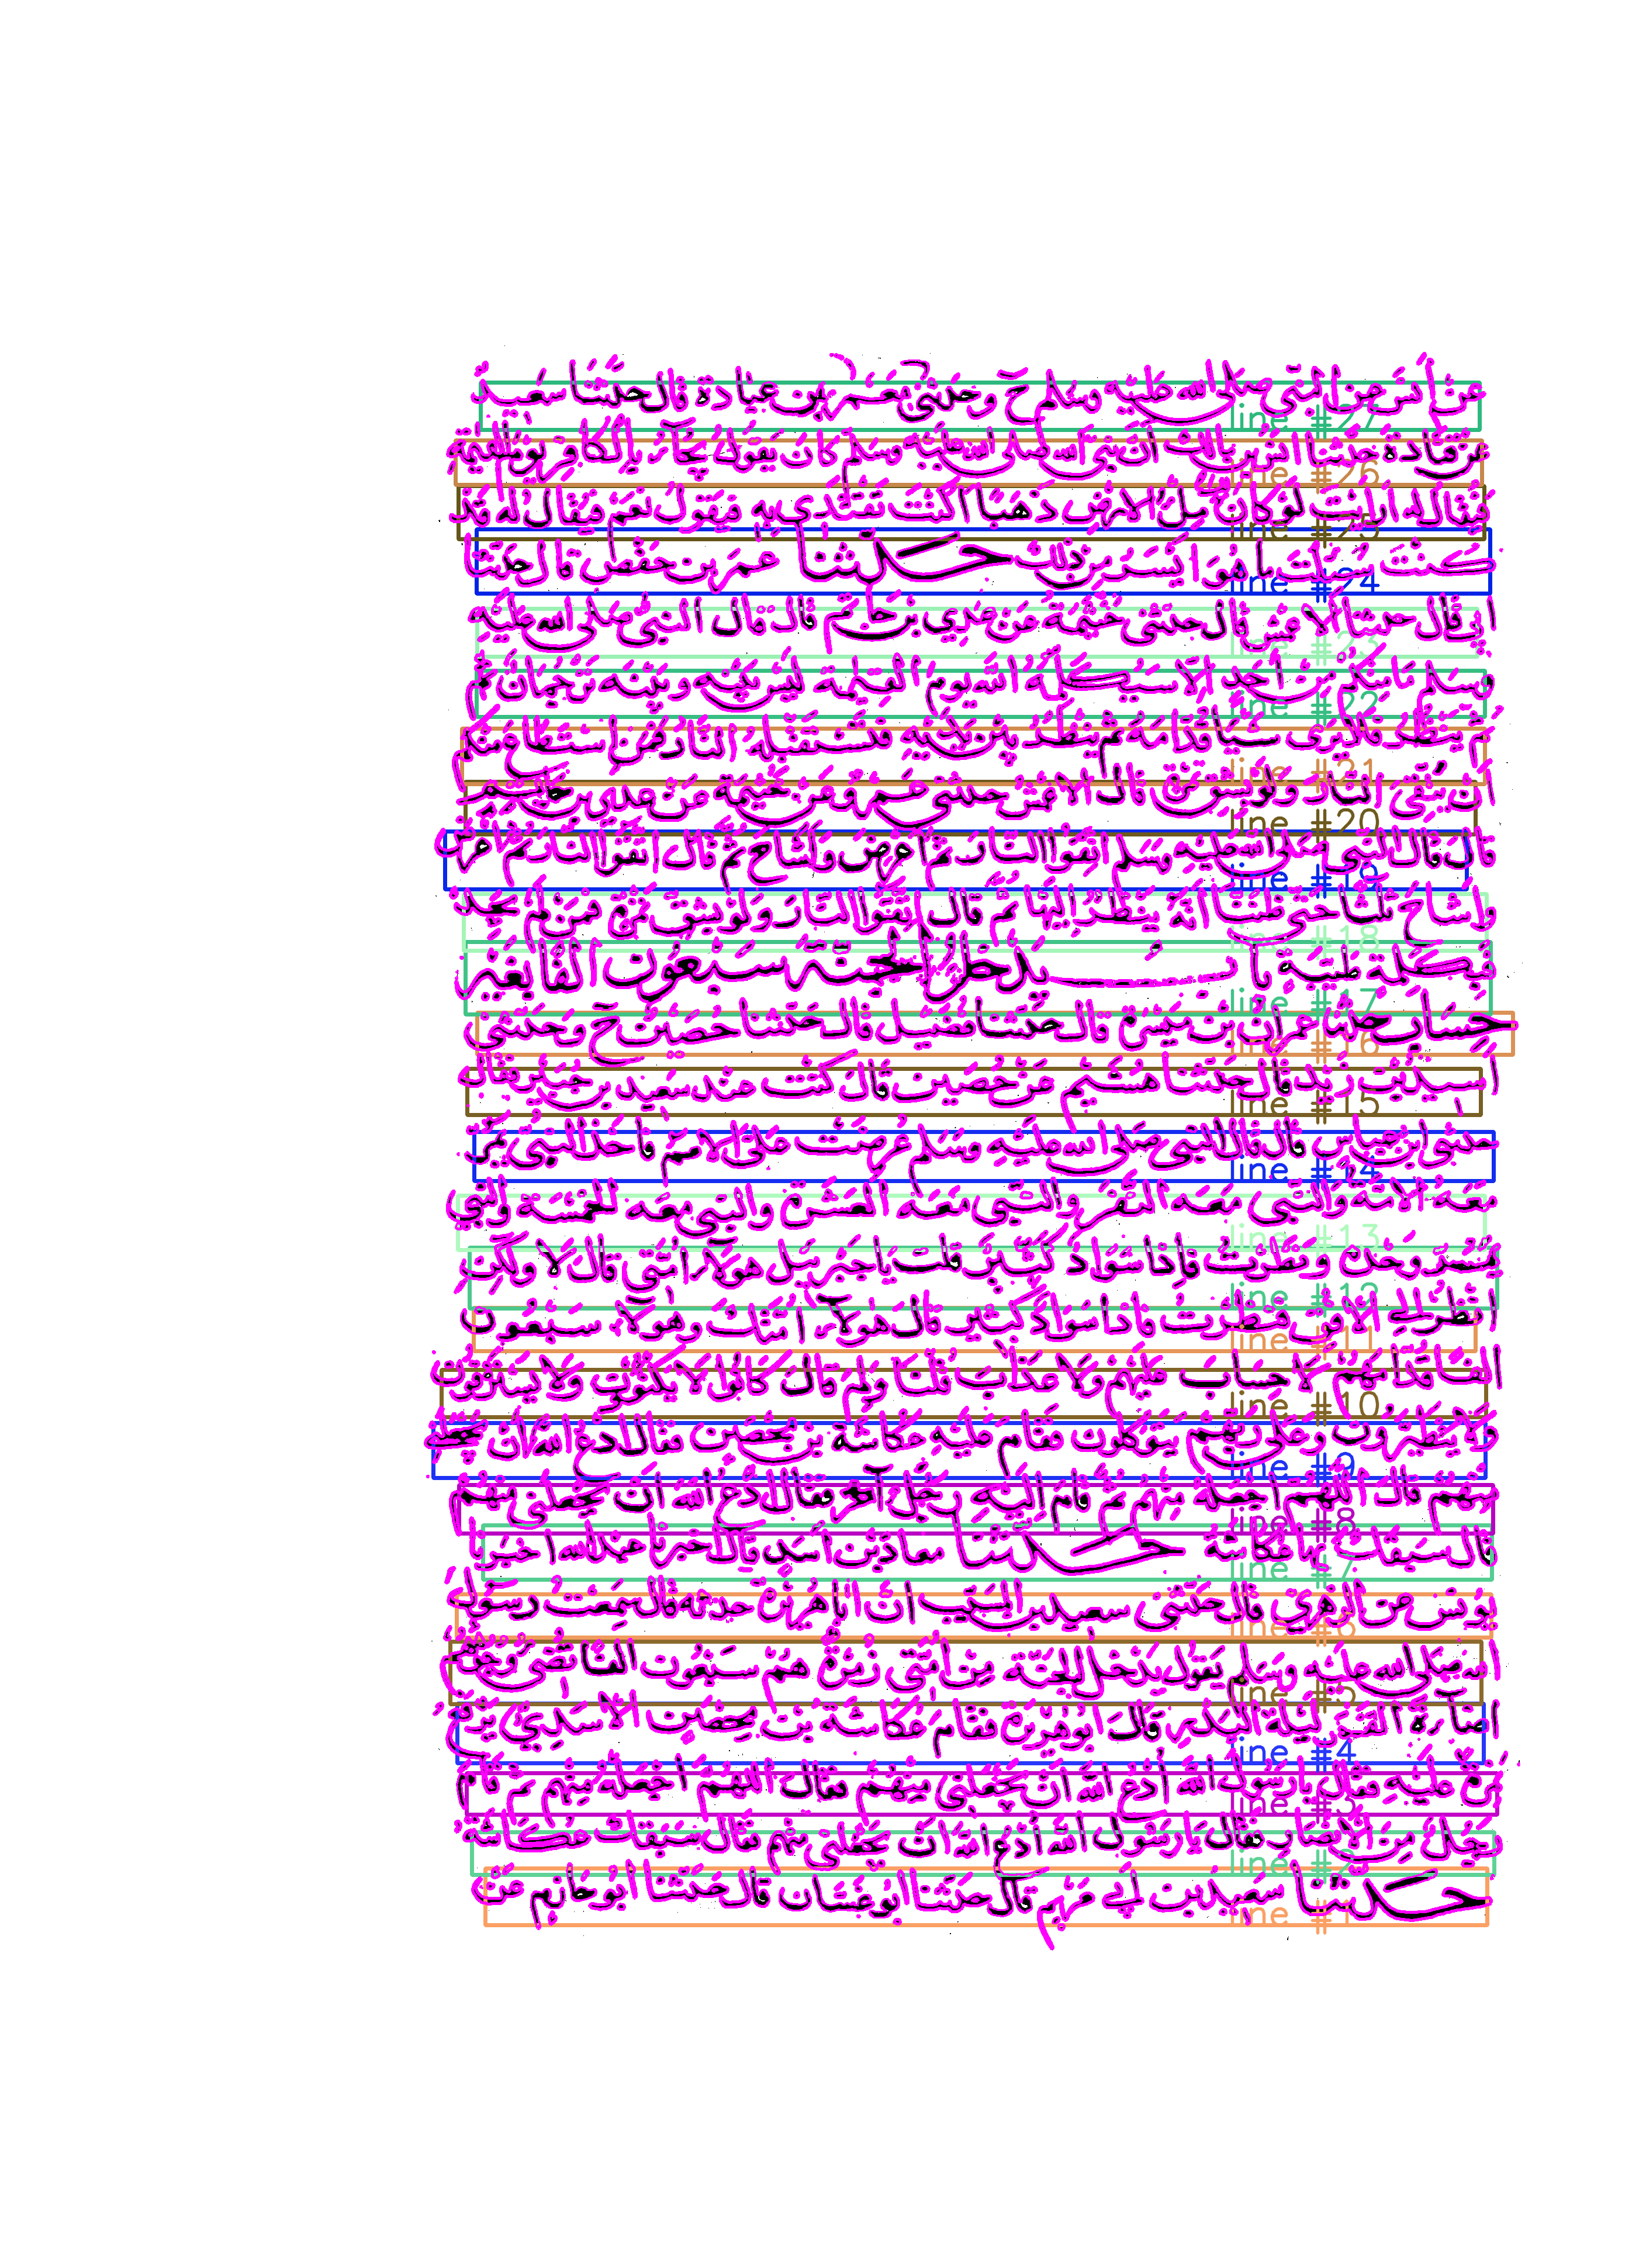 عن أنس عن النبي صلى الله عليه وسلم ح وحدثني معمر بن عبادة قال حدثنا سعيد
عن قتادة حدثنا انس بن مالك أن نبي الله صلى الله عليه وسلم كان يقول يجاء بالكافر يوم القيمة
فيقال له ارايت لو كان لك ملء الارض ذهبا اكنت تفتدي به فيقول نعم فيقال له قد
كنت سئلت ما هو ايسر من ذلك حدثنا عمر بن حفص قال حدثنا
ابي قال حدثنا الاعمش قال حدثني خيثمة عن عدي بن حاتم قال قال النبي صلى الله عليه
وسلم ما منكم من احد الا سيكلمه الله يوم القيمة ليس بينه وبينه ترجمان ثم
ثم ينظر فلا يرى شيئا قدامه ثم ينظر بين يديه فتستقبله النار فمن استطاع منكم
أن يتقي النار ولو بشق تمرة قال الاعمش حدثني عمرو عن خيثمة عن عدي بن حاتم
قال قال النبي صلى الله عليه وسلم اتقوا النار ثم اعرض واشاح ثم قال اتقوا النار ثم اعرض
واشاح ثلثا حتى ظننا انه ينظر اليها ثم قال اتقوا النار ولو بشق تمرة فمن لم يجد
فبكلمة طيبة باب يدخل الجنة سبعون الفا بغير
حساب حدثنا عمران بن ميسرة قال حدثنا فضيل قال حدثنا حصين ح وحدثني
اسيد بن زيد قال حدثنا هشيم عن حصين قال كنت عند سعيد بن جبير فقال
حدثني ابن عباس قال قال النبي صلى الله عليه وسلم عرضت على الامم فاخذ النبي يمر
معه الامة والنبي معه النفر والنبي معه العشرة والنبي معه الخمسة والنبي
يمر وحده ونظرت فاذا سواد كثير قلت يا جبريل هولاء امتي قال لا ولكن
انظر الى الافق فنظرت فاذا سواد كثير قال هولاء امتك وهولاء سبعون
الفا قدامهم لا حساب عليهم ولا عذاب قلت ولم قال كانوا لا يكتوون ولا يسترقون
ولا يتطيرون وعلى ربهم يتوكلون فقام اليه عكاشة بن محصن فقال ادع الله أن يجعلني
منهم قال اللهم اجعله منهم ثم قام اليه رجل آخر فقال ادع الله أن يجعلني منهم
قال سبقك بها عكاشة حدثنا معاذ بن اسد قال اخبرنا عبد الله اخبرنا
يونس عن الزهري قال حدثني سعيد بن المسيب ان ابا هريرة حدثه قال سمعت رسول
الله صلى الله عليه وسلم يقول يدخل الجنة من امتي زمرة هم سبعون الفا تضي وجوههم
اضآءة القمر ليلة البدر قال ابو هريرة فقام عكاشة بن محصن الاسدي يرفع
نمرة عليه فقال يا رسول الله ادع الله أن يجعلني منهم فقال اللهم اجعله منهم ثم قام
رجل من الانصار فقال يا رسول الله ادع الله ان يجعلني منهم فقال سبقك عكاشة
حدثنا سعيد بن ابي مريم قال حدثنا ابو غسان قال حدثنا ابو حازم عن
line #27
line #26
line #25
line #24
line #23
line #22
line #21
line #20
line #19
line #18
line #17
line #16
line #15
line #14
line #13
line #12
line #11
line #10
line #9
line #8
line #7
line #6
line #5
line #4
line #3
line #2
line #1